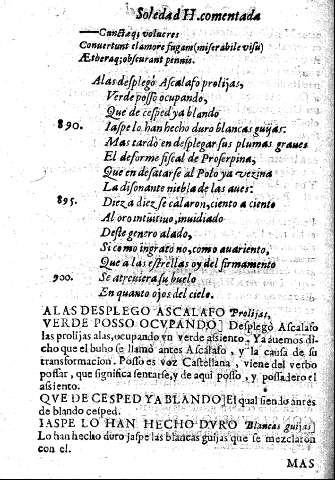 Soledad II. comentada
——Cunctæq; volucres
Convertunt clamore fugam (miserabile visu)
Ætheraq; obscurant pennis.
Alas desplegò Ascalafo prolijas,
Verde posso ocupando,
Que de cesped ya blando
890. Iaspe lo han hecho duro blancas guijas:
Mas tardò en desplegar sus plumas graues
El deforme fiscal de Proserpina,
Que en desatarse al Polo ya vezina
La disonante niebla de las aues:
895. Diez a diez se calaron, ciento a ciento
Al oro intüitiuo, inuidiado
Deste genero alado,
Si como ingrato no, como auariento,
Que a las estrellas oy del firmamento
900. Se atreuiera su buelo
En quanto ojos del cielo.
ALAS DESPLEGO ASCALAFO Prolijas,
VERDE POSSO OCVPANDO] Desplegò Ascalafo
las prolijas alas, ocupando vn verde assiento. Ya auemos di
cho que el buho se llamò antes Ascàlafo, y la causa de su
transformacion. Posso es voz Castellana, viene del verbo
possar, que significa sentarse, y de aqui posso, y possadero el
assiento.
QVE DE CESPED YA BLANDO] El qual siendo antes
de blando cesped.
IASPE LO HAN HECHO DVRO Blancas guijas]
Lo han hecho duro jaspe las blancas guijas que se mezclaron
con el.
MAS